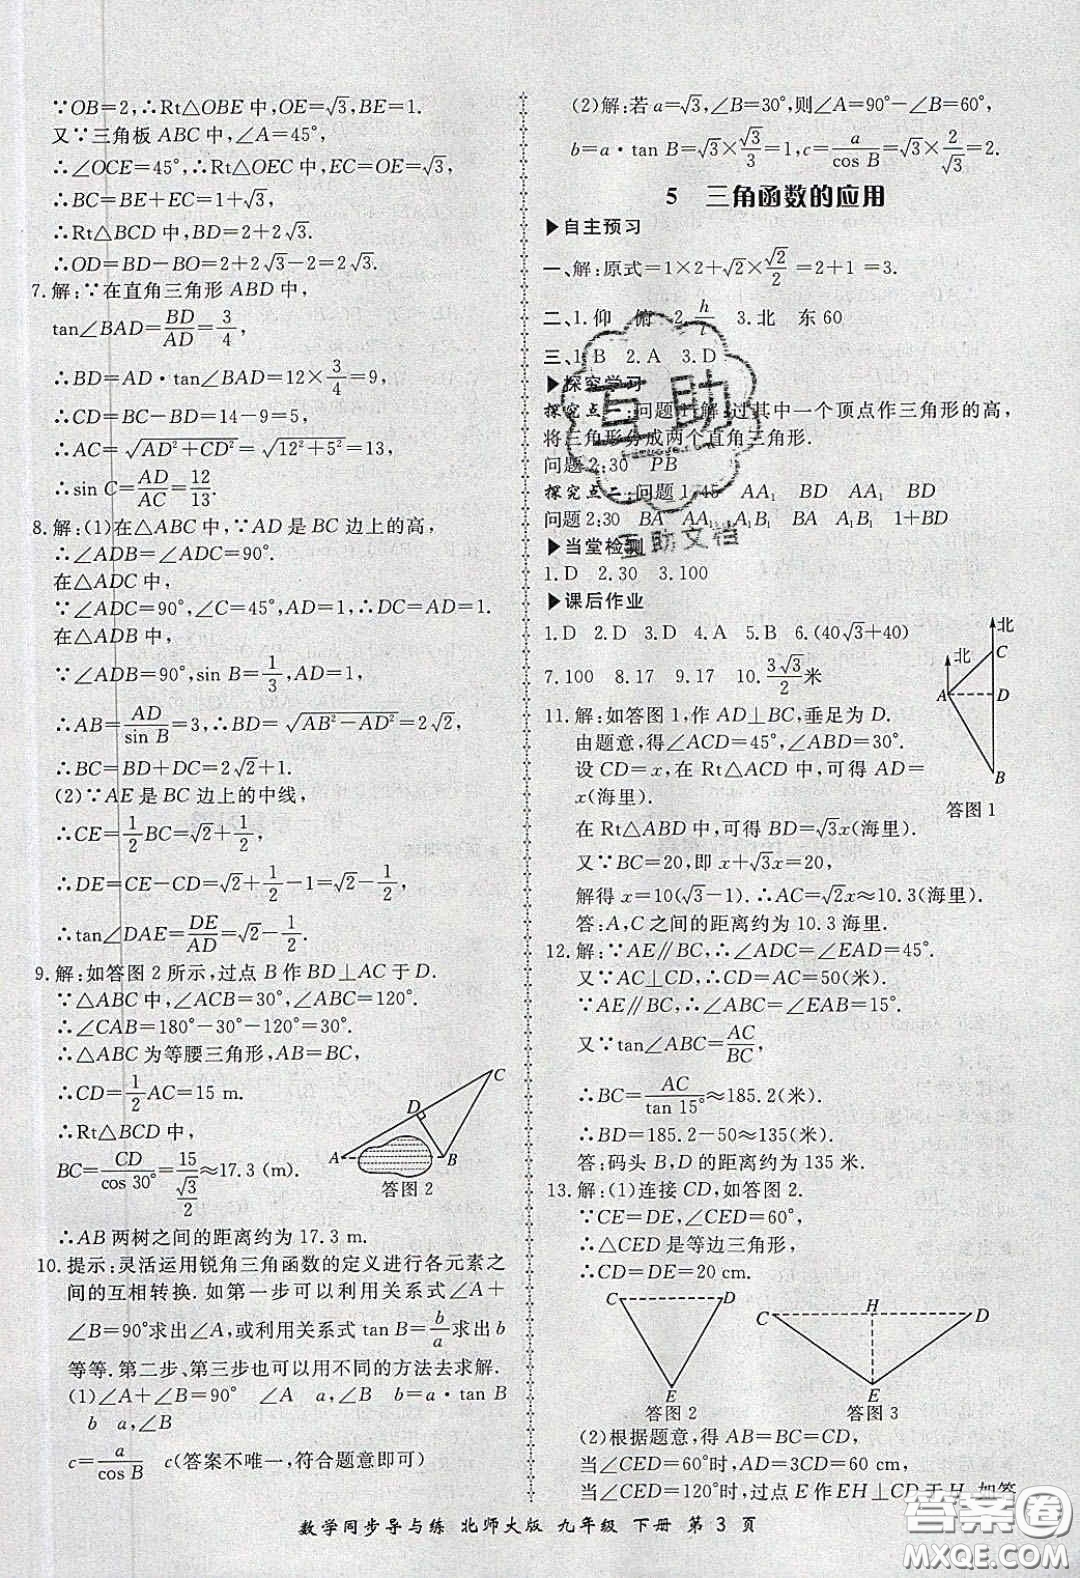 ∵OB=2,∴Rt△OBE 中,OE=√3,BE=1.
又∵三角板 ABC 中,∠A=45°,
∴∠OCE=45°,∴Rt△OEC 中,EC=OE=√3,
∴BC=BE+EC=1+√3,
∴Rt△BCD 中,BD=2+2√3.
∴OD=BD-BO=2+2√3-2=2√3.
7.解:∵在直角三角形 ABD 中,
tan∠BAD=BD/AD=3/4,
∴BD=AD·tan∠BAD=12×3/4=9,
∴CD=BC-BD=14-9=5,
∴AC=√(AD²+CD²)=√(12²+5²)=13,
∴sin C=AD/AC=12/13.
8.解:(1)在△ABC 中,∵AD 是 BC 边上的高,
∴∠ADB=∠ADC=90°.
在△ADC 中,
∵∠ADC=90°,∠C=45°,AD=1,∴DC=AD=1.
在△ADB 中,
∵∠ADB=90°,sin B=1/3,AD=1,
∴AB=AD/sin B=3,∴BD=√(AB²-AD²)=2√2,
∴BC=BD+DC=2√2+1.
(2)∵AE 是 BC 边上的中线,
∴CE=1/2BC=√2+1/2,
∴DE=CE-CD=√2+1/2-1=√2-1/2,
∴tan∠DAE=DE/AD=√2-1/2.
9.解:如答图 2 所示,过点 B 作 BD⊥AC 于 D.
∵△ABC 中,∠ACB=30°,∠ABC=120°,
∴∠CAB=180°-30°-120°=30°.
∴△ABC 为等腰三角形,AB=BC,
∴CD=1/2AC=15 m.
∴Rt△BCD 中,
BC=CD/cos 30°=15/(√3/2)≈17.3 (m).
C
D
A
B
答图 2
∴AB 两树之间的距离约为 17.3 m.
10.提示:灵活运用锐角三角函数的定义进行各元素之
间的互相转换.如第一步可以利用关系式∠A+
∠B=90°求出∠A,或利用关系式 tan B=b/a求出b
等等.第二步、第三步也可以用不同的方法去求解.
(1)∠A+∠B=90° ∠A a,∠B b=a·tan B
b a,∠B
c=a/cos B c(答案不唯一,符合题意即可)
(2)解:若 a=√3,∠B=30°,则∠A=90°-∠B=60°,
b=a·tan B=√3×√3/3=1,c=a/cos B=√3×2/√3=2.
5 三角函数的应用
▶自主预习
一、解:原式=1×2+√2×√2/2=2+1=3.
二、1.仰 俯 2.h/l 3.北 东60
三、1.B 2.A 3.D
▶探究学习
探究点一:问题1:解:过其中一个顶点作三角形的高,
将三角形分成两个直角三角形.
问题2:30 PB
探究点二:问题1:45 AA₁ BD AA₁ BD
问题2:30 BA AA₁ A₁B₁ BA A₁B₁ 1+BD
▶当堂检测
1.D 2.30 3.100
▶课后作业
1.D 2.D 3.D 4.A 5.B 6.(40√3+40)
7.100 8.17 9.17 10.3√3/2米
北
北
C
A
D
B
答图 1
11.解:如答图 1,作 AD⊥BC,垂足为 D.
由题意,得∠ACD=45°,∠ABD=30°.
设 CD=x,在 Rt△ACD 中,可得 AD=
x(海里).
在 Rt△ABD 中,可得 BD=√3x(海里).
又∵BC=20,即 x+√3x=20,
解得 x=10(√3-1).∴AC=√2x≈10.3(海里).
答:A,C 之间的距离约为 10.3 海里.
12.解:∵AE∥BC,∴∠ADC=∠EAD=45°.
又∵AC⊥CD,∴CD=AC=50(米).
∵AE∥BC,∴∠ABC=∠EAB=15°.
又∵tan∠ABC=AC/BC,
∴BC=AC/tan 15°≈185.2(米).
∴BD=185.2-50≈135(米).
答:码头 B,D 的距离约为 135 米.
13.解:(1)连接 CD,如答图 2.
∵CE=DE,∠CED=60°,
∴△CED 是等边三角形,
∴CD=DE=20 cm.
C
D
E
答图 2
C
H
D
E
答图 3
(2)根据题意,得 AB=BC=CD,
当∠CED=60°时,AD=3CD=60 cm,
当∠CED=120°时,过点 E作 EH⊥CD 于 H,如答
数学同步导与练 北师大版 九年级 下册 第 3 页
互助
互助文档
答案圈
MXQE.COM